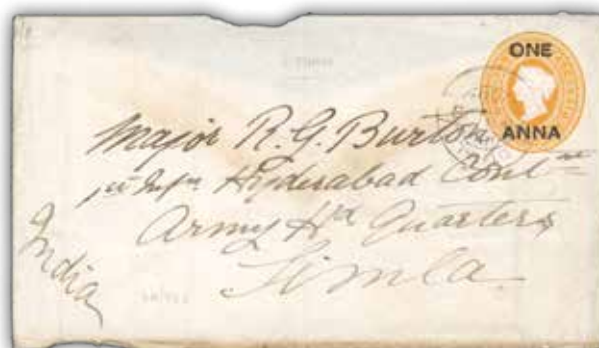 ONE
ANNA
Major R.G. Burton
1st Infn Hyderabad Contnt
Army Hd Quarters
Simla
India